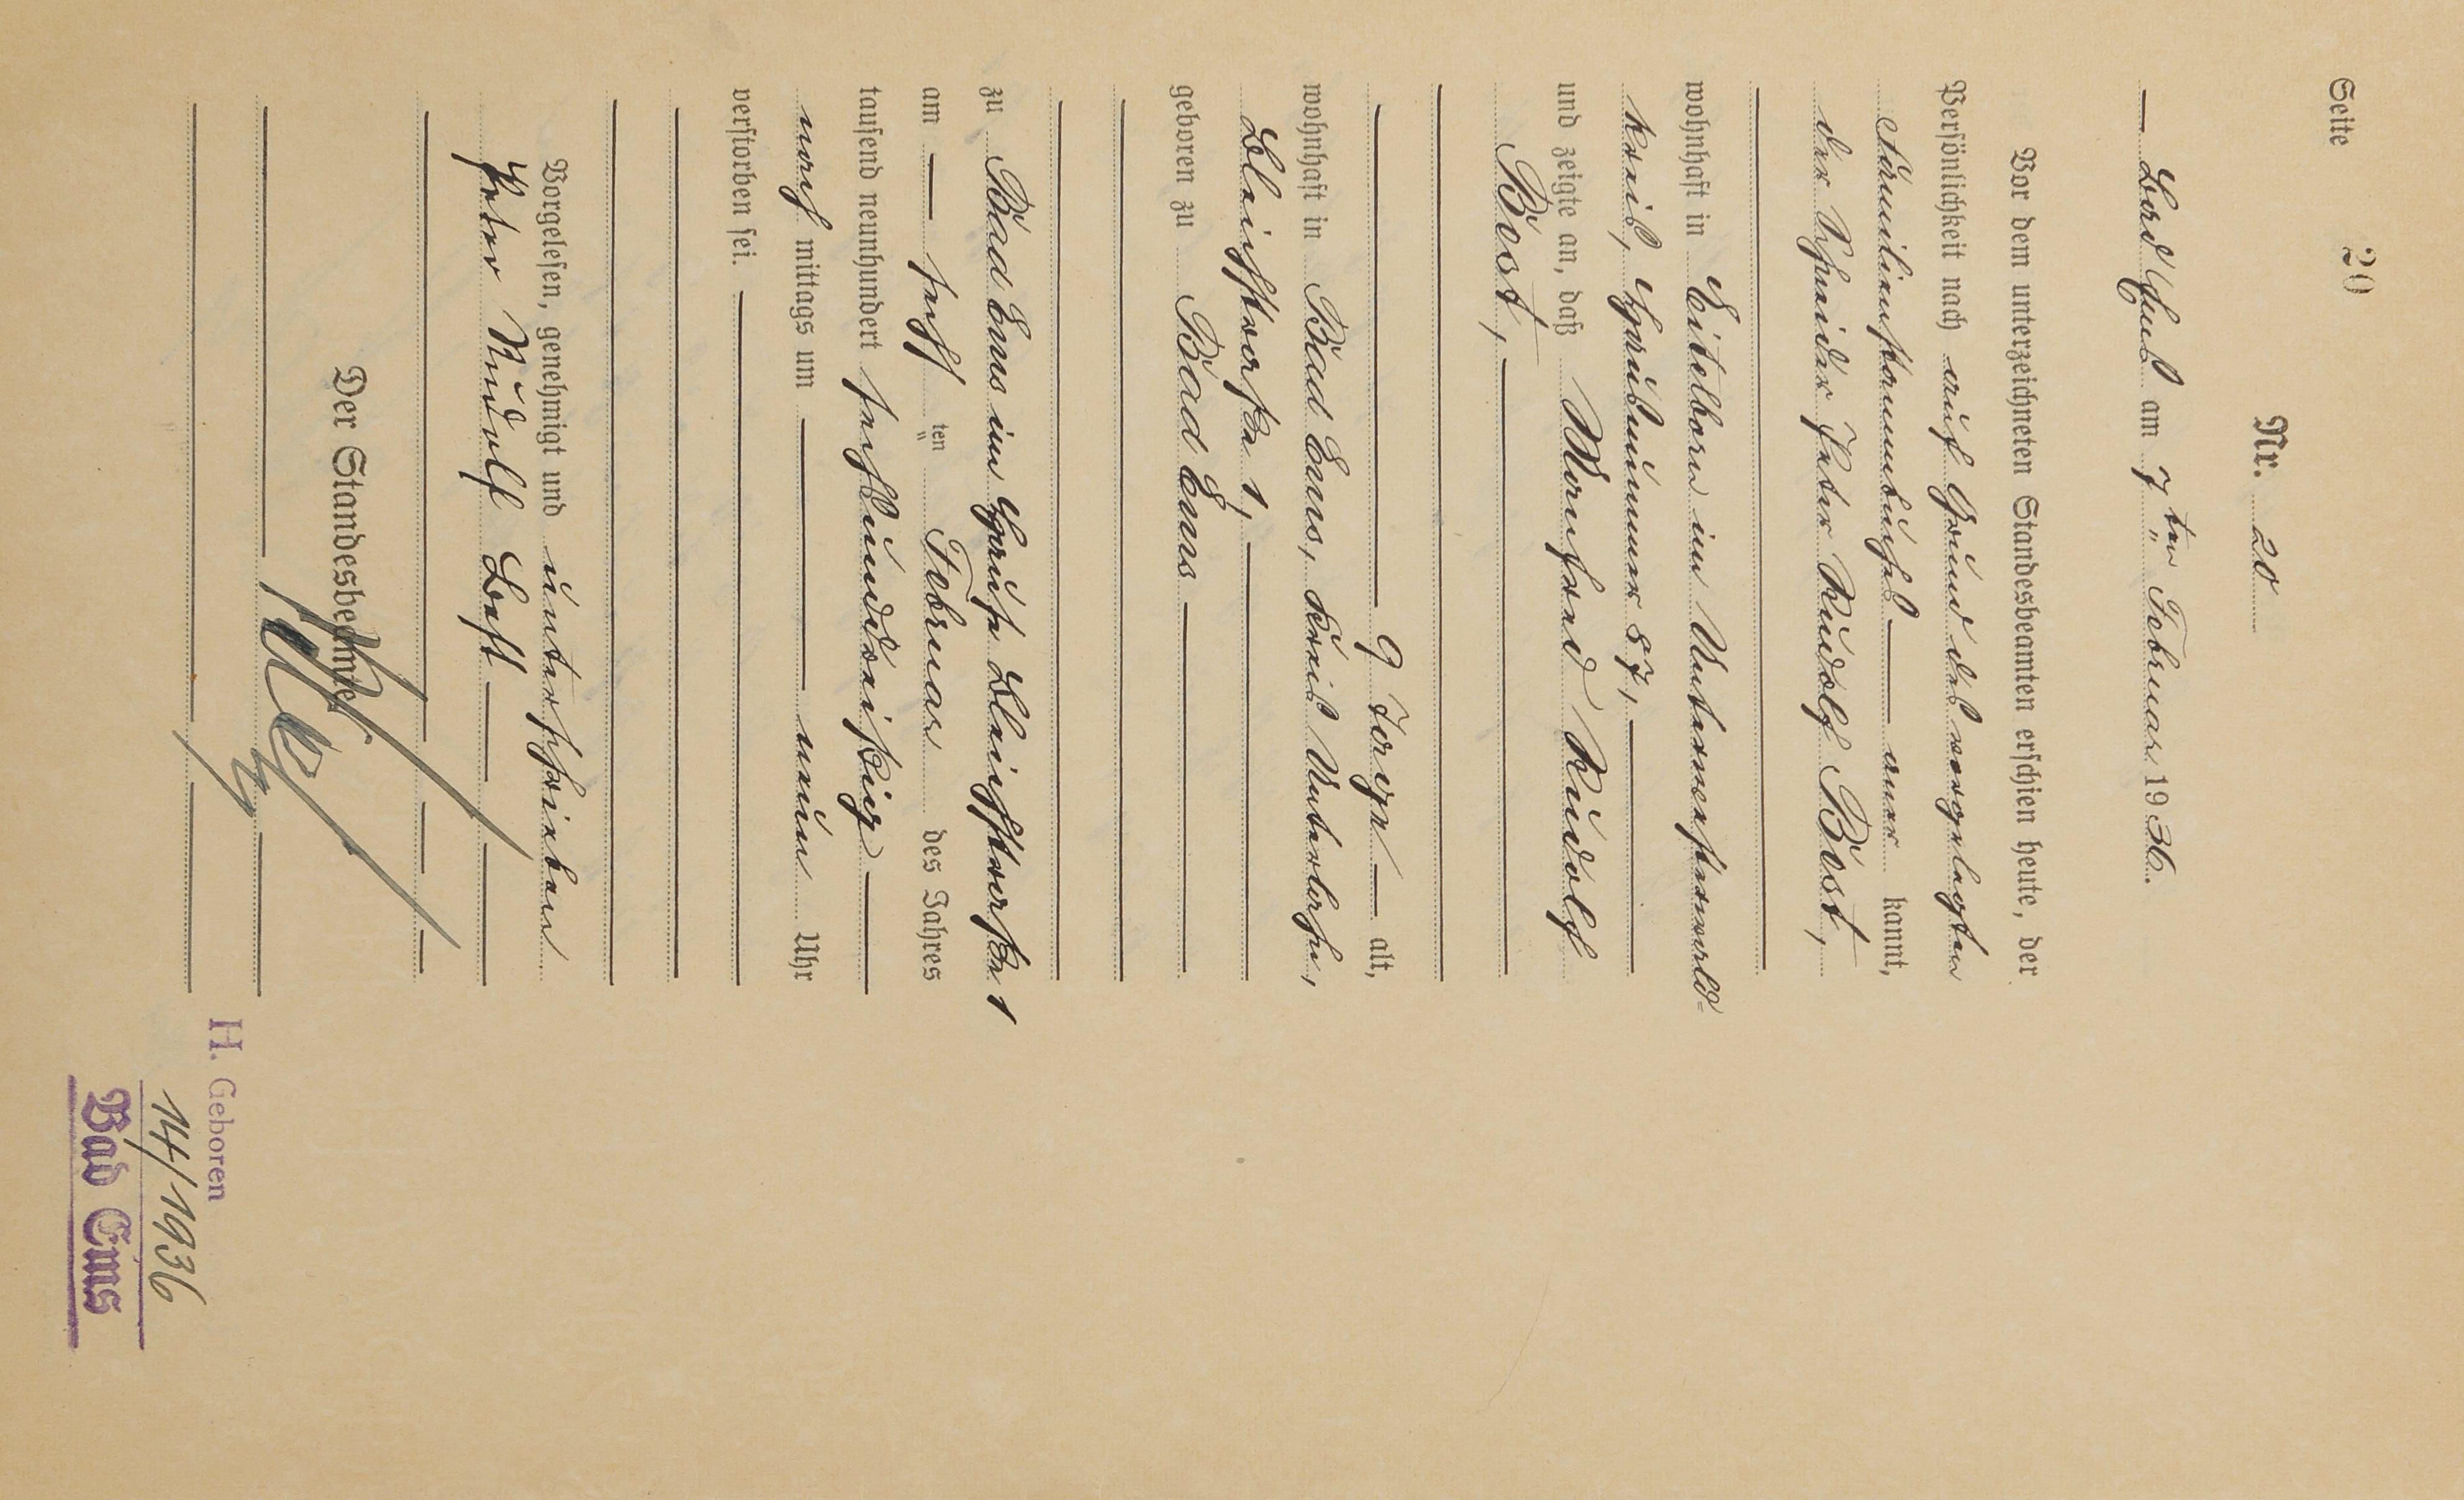 Seite 20
Nr. 20
Bad Ems am 7ten Februar 1936.
Vor dem unterzeichneten Standesbeamten erschien heute, der
Persönlichkeit nach auf Grund des vorgelegten
Familienstammbuches aner kannt,
der Schneider Peter Rudolf Bost,
wohnhaft in Eitelborn im Unterwesterwald-
kreis, Hausnummer 87,
und zeigte an, daß Manfred Rudolf
Bost,
9 Tage alt,
wohnhaft in Bad Ems, Kreis Unterlahn,
Bleichstraße 1,
geboren zu Bad Ems
zu Bad Ems im Hause Bleichstraße 1
am sechsten Februar des Jahres
tausend neunhundert sechsunddreißig
nach mittags um neun Uhr
verstorben sei.
Vorgelesen, genehmigt und unterschrieben
Peter Rudolf Bost
Der Standesbeamte.
H. Geboren
14/1936
Bad Ems